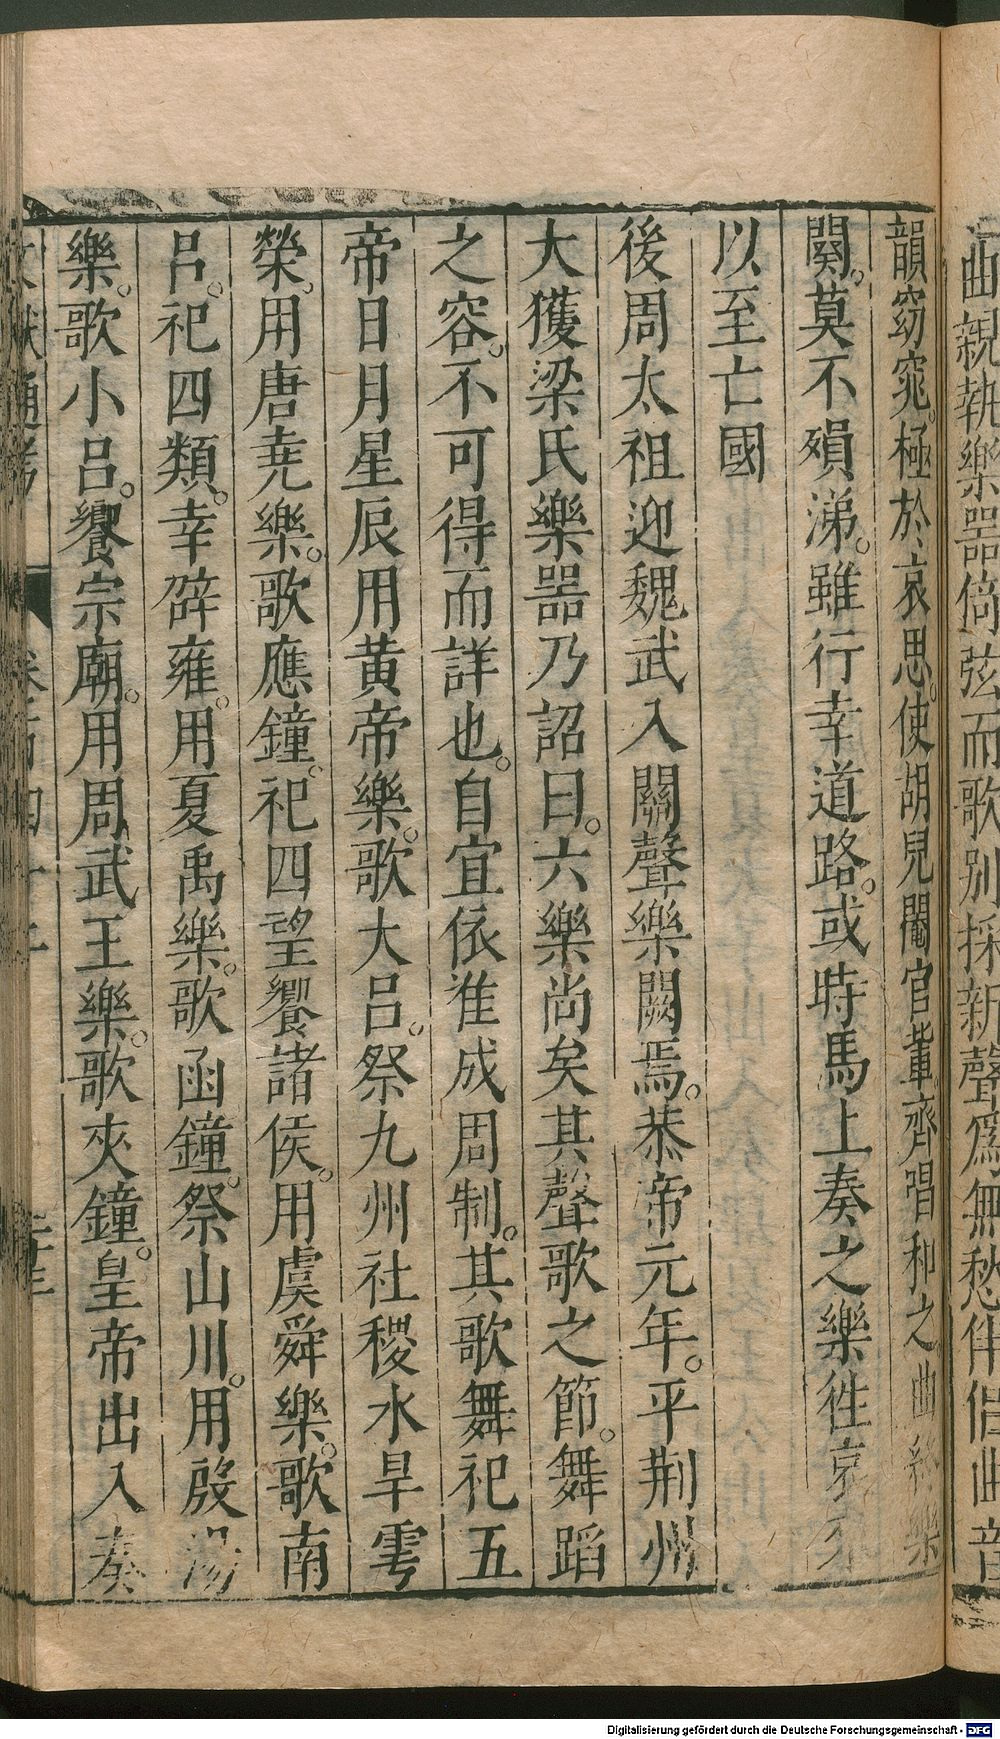 曲親執樂器倚弦而歌別採新聲爲無愁伴侣曲音
韻窈窕極於哀思使胡兒閹官軰齊唱和之曲終樂
闋莫不殞涕雖行幸道路或時馬上奏之樂徃哀來
以至亡國
後周太祖迎魏武入關聲樂闕焉恭帝元年平荆州
大獲梁氏樂器乃詔曰六樂尚矣其聲歌之節舞蹈
之容不可得而詳也自宜依准成周制其歌舞祀五
帝日月星辰用黄帝樂歌大吕祭九州社稷水旱雩
禜用唐尭樂歌應鐘祀四望饗諸侯用虞舜樂歌南
吕祀四類幸辟雍用夏禹樂歌函鐘祭山川用殷湯
樂歌小吕饗宗廟用周武王樂歌夾鐘皇帝出入奏
文獻通考 卷一百四十二
Digitalisierung gefördert durch die Deutsche Forschungsgemeinschaft - DFG